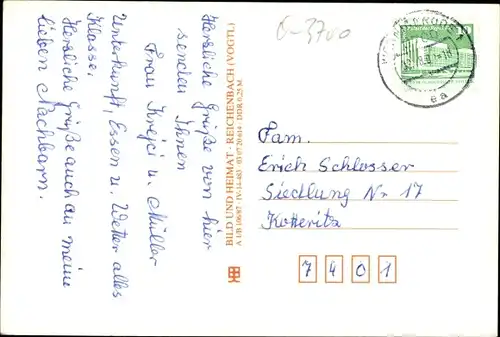 Herzliche Grüße von hier
senden Ihnen
Frau Krejci u. Müller
Unterkunft, Essen u. Wetter alles
Klasse.
Herzliche Grüße auch an meine
lieben Nachbarn.
BILD UND HEIMAT · REICHENBACH (VOGTL)
A 1/B 086/87 · IV-14-483 · 03 07 20 614 · DDR 0,25 M
Fam.
Erich Schlosser
Siedlung Nr 17
Kotteritz
7401